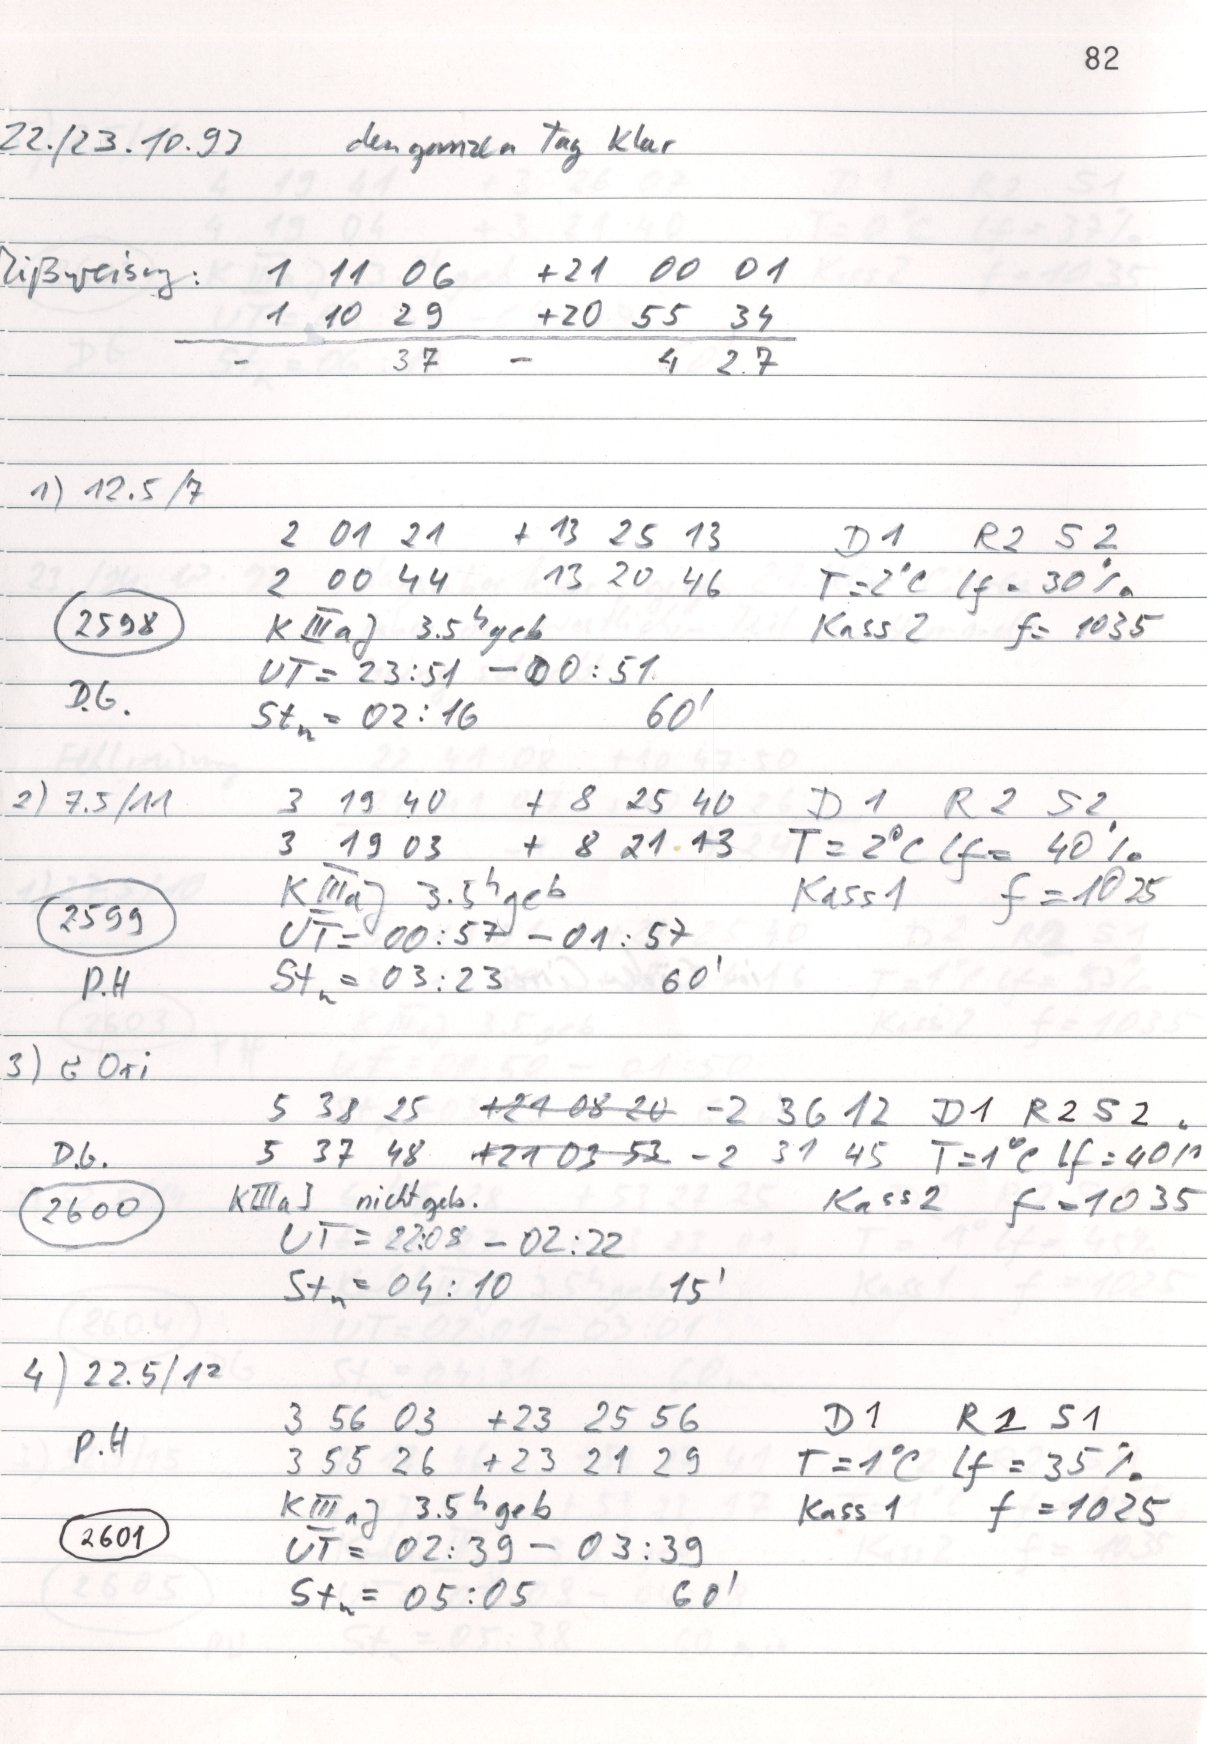 82
22./23.10.93 den ganzen Tag klar
Mißweisung: 1 11 06 +21 00 01
1 10 29 +20 55 34
- 37 - 4 27
1) 12.5/7
2 01 21 +13 25 13 D1 R2 S2
2 00 44 13 20 46 T=2°C lf = 30%
2598 K IIIaJ 3.5h geb Kass 2 f= 1035
UT = 23:51 - 00:51
D.G. Stn = 02:16 60'
2) 7.5/11 3 19 40 + 8 25 40 D1 R2 S2
3 19 03 + 8 21 13 T=2°C lf = 40%
2599 K IIIaJ 3.5h geb Kass 1 f = 1025
UT = 00:57 - 01:57
P.H Stn = 03:23 60'
3) Ori
5 38 25 +21 08 20 -2 36 12 D1 R2 S2
D.G. 5 37 48 +21 03 53 -2 31 45 T=1°C lf = 40%
2600 K IIIaJ nicht geb. Kass 2 f = 1035
UT = 22:08 - 02:22
Stn = 04:10 15'
4) 22.5/12
P.H 3 56 03 +23 25 56 D1 R1 S1
3 55 26 +23 21 29 T=1°C lf = 35%
K IIIaJ 3.5h geb Kass 1 f = 1025
2601 UT = 02:39 - 03:39
Stn = 05:05 60'